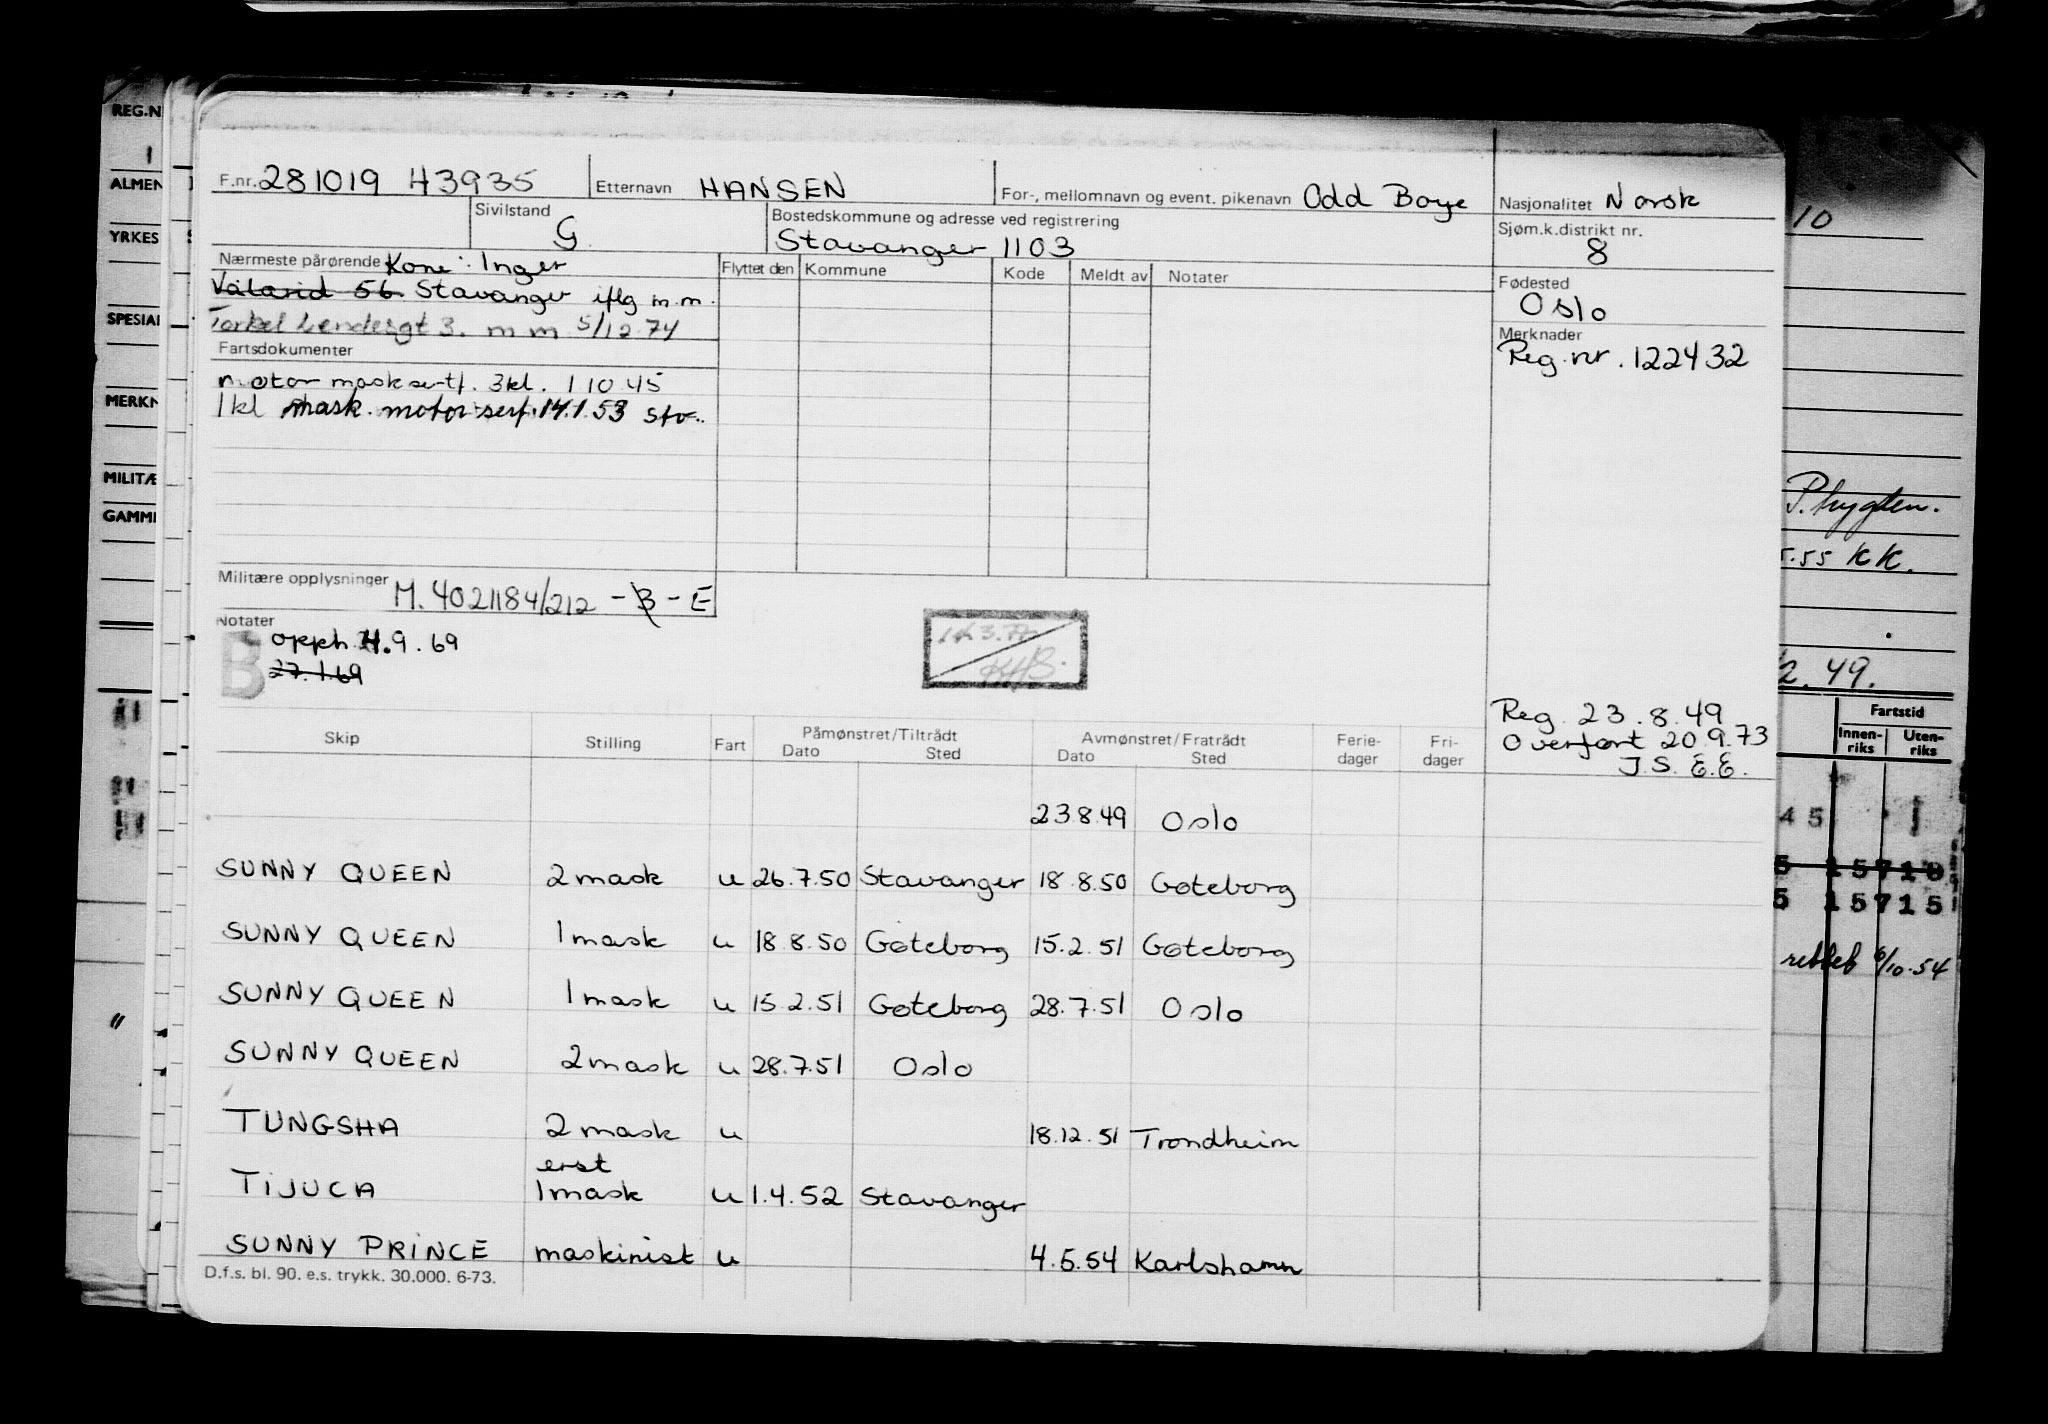 F.nr. 281019 43935 Etternavn HANSEN For-, mellomnavn og event. pikenavn Odd Boye Nasjonalitet Norsk
Sivilstand G Bostedskommune og adresse ved registrering Stavanger 1103 Sjøm.k.distrikt nr. 8
Nærmeste pårørende Kone: Inger
56 Stavanger iflg m.m.
3. m m 5/12.74
Flyttet den Kommune Kode Meldt av Notater
Fødested
Oslo
Merknader
Reg. nr. 122432
Fartsdokumenter
motor mask sertf. 3kl. 1 10 45
1 kl mask. motor sert. 14.1.53
Militære opplysninger M. 4021184/212 - B - E
Notater
B opph. 4.9.69
27.1.69
Reg. 23.8.49
Overført 20.9.73
J.S. E.E.
Skip Stilling Fart Påmønstret/Tiltrådt Dato Sted Avmønstret/Fratrådt Dato Sted Ferie-dager Fri-dager
23.8.49 Oslo
SUNNY QUEEN 2 mask u 26.7.50 Stavanger 18.8.50 Gøteborg
SUNNY QUEEN 1 mask u 18.8.50 Gøteborg 15.2.51 Gøteborg
SUNNY QUEEN 1 mask u 15.2.51 Gøteborg 28.7.51 Oslo
SUNNY QUEEN 2 mask u 28.7.51 Oslo
TUNGSHA 2 mask u 18.12.51 Trondheim
erst
TIJUCA 1 mask u 1.4.52 Stavanger
SUNNY PRINCE maskinist u 4.5.54 Karlshamn
D.f.s. bl. 90. e.s. trykk. 30.000. 6-73.
REG.N
ALMEN
YRKES
SPESIAL
MERKN
MILITÆ
GAMME
10
.55 KK.
2.49.
Fartstid
Innen-riks Uten-riks
45
5 15718
5 15715
rettet 6/10.54